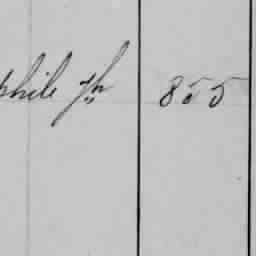 phile Jn 855